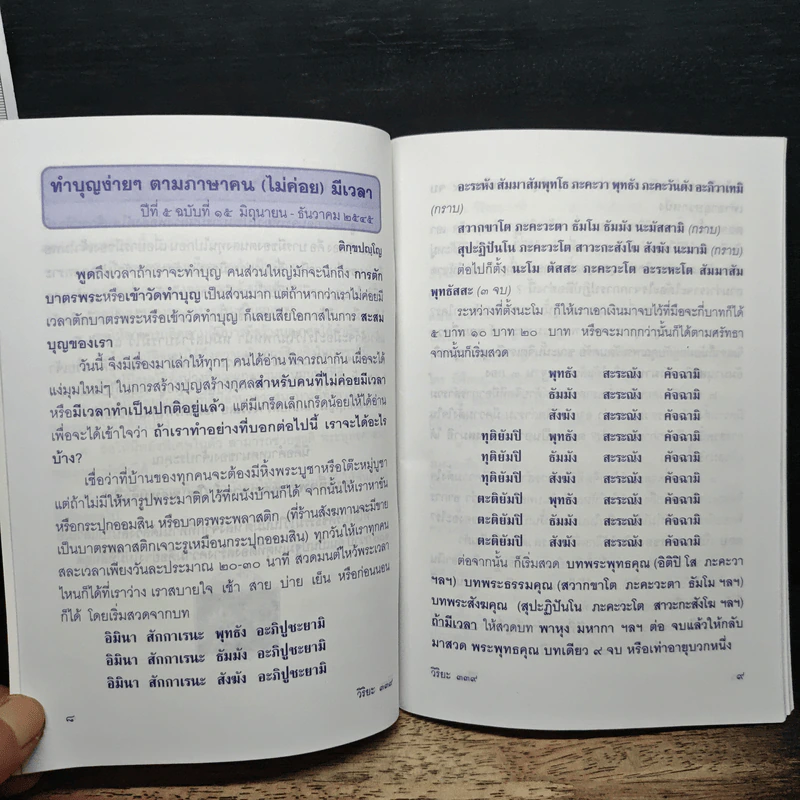 ทำบุญง่ายๆ ตามภาษาคน (ไม่ค่อย) มีเวลา
ปีที่ ๕ ฉบับที่ ๑๕ มิถุนายน - ธันวาคม ๒๕๔๕
ติกฺขปญฺโญ
พูดถึงเวลาถ้าเราจะทำบุญ คนส่วนใหญ่มักจะนึกถึง การตัก
บาตรพระหรือเข้าวัดทำบุญ เป็นส่วนมาก แต่ถ้าหากว่าเราไม่ค่อยมี
เวลาตักบาตรพระหรือเข้าวัดทำบุญ ก็เลยเสียโอกาสในการ สะสม
บุญของเรา
วันนี้ จึงมีเรื่องมาเล่าให้ทุกๆ คนได้อ่าน พิจารณากัน เผื่อจะได้
แง่มุมใหม่ๆ ในการสร้างบุญสร้างกุศลสำหรับคนที่ไม่ค่อยมีเวลา
หรือมีเวลาทำเป็นปกติอยู่แล้ว แต่มีเกร็ดเล็กเกร็ดน้อยให้ได้อ่าน
เพื่อจะได้เข้าใจว่า ถ้าเราทำอย่างที่บอกต่อไปนี้ เราจะได้อะไร
บ้าง?
เชื่อว่าที่บ้านของทุกคนจะต้องมีหิ้งพระบูชาหรือโต๊ะหมู่บูชา
แต่ถ้าไม่มีให้หารูปพระมาติดไว้ที่ผนังบ้านก็ได้ จากนั้นให้เราหาขัน
หรือกระปุกออมสิน หรือบาตรพระพลาสติก (ที่ร้านสังฆทานจะมีขาย
เป็นบาตรพลาสติกเจาะรูเหมือนกระปุกออมสิน) ทุกวันให้เราทุกคน
สละเวลาเพียงวันละประมาณ ๒๐-๓๐ นาที สวดมนต์ไหว้พระเวลา
ไหนก็ได้ที่เราว่าง เราสบายใจ เช้า สาย บ่าย เย็น หรือก่อนนอน
ก็ได้ โดยเริ่มสวดจากบท
อิมินา สักกาเรนะ พุทธัง อะภิปูชะยามิ
อิมินา สักกาเรนะ ธัมมัง อะภิปูชะยามิ
อิมินา สักกาเรนะ สังฆัง อะภิปูชะยามิ
วิริยะ ๓๓๙
๘
อะระหัง สัมมาสัมพุทโธ ภะคะวา พุทธัง ภะคะวันตัง อะภิวาเทมิ
(กราบ)
สวากขาโต ภะคะวะตา ธัมโม ธัมมัง นะมัสสามิ (กราบ)
สุปะฏิปันโน ภะคะวะโต สาวะกะสังโฆ สังฆัง นะมามิ (กราบ)
ต่อไปก็ตั้ง นะโม ตัสสะ ภะคะวะโต อะระหะโต สัมมาสัม
พุทธัสสะ (๓ จบ)
ระหว่างที่ตั้งนะโม ก็ให้เราเอาเงินมาจบไว้ที่มือจะกี่บาทก็ได้
๕ บาท ๑๐ บาท ๒๐ บาท หรือจะมากกว่านั้นก็ได้ตามศรัทธา
จากนั้นก็เริ่มสวด
พุทธัง สะระณัง คัจฉามิ
ธัมมัง สะระณัง คัจฉามิ
สังฆัง สะระณัง คัจฉามิ
ทุติยัมปิ พุทธัง สะระณัง คัจฉามิ
ทุติยัมปิ ธัมมัง สะระณัง คัจฉามิ
ทุติยัมปิ สังฆัง สะระณัง คัจฉามิ
ตะติยัมปิ พุทธัง สะระณัง คัจฉามิ
ตะติยัมปิ ธัมมัง สะระณัง คัจฉามิ
ตะติยัมปิ สังฆัง สะระณัง คัจฉามิ
ต่อจากนั้น ก็เริ่มสวด บทพระพุทธคุณ (อิติปิ โส ภะคะวา
ฯลฯ) บทพระธรรมคุณ (สวากขาโต ภะคะวะตา ธัมโม ฯลฯ)
บทพระสังฆคุณ (สุปะฏิปันโน ภะคะวะโต สาวะกะสังโฆ ฯลฯ)
ถ้ามีเวลา ให้สวดบท พาหุง มหากา ฯลฯ ต่อ จบแล้วให้กลับ
มาสวด พระพุทธคุณ บทเดียว ๙ จบ หรือเท่าอายุบวกหนึ่ง
วิริยะ ๓๓๙
๙